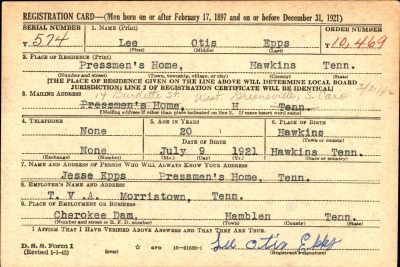 REGISTRATION CARD—(Men born on or after February 17, 1897 and on or before December 31, 1921)
SERIAL NUMBER 1. NAME (Print) ORDER NUMBER
T 574 Lee Otis Epps 10,469
(First) (Middle) (Last)
2. PLACE OF RESIDENCE (Print)
Pressmen's Home, Hawkins Tenn.
(Number and street) (Town, township, village, or city) (County) (State)
[THE PLACE OF RESIDENCE GIVEN ON THE LINE ABOVE WILL DETERMINE LOCAL BOARD
JURISDICTION; LINE 2 OF REGISTRATION CERTIFICATE WILL BE IDENTICAL]
Burdette St West Greenville S. Caro
3. MAILING ADDRESS
Pressmen's Home, H Tenn.
(Mailing address if other than place indicated on line 2. If same insert word same)
4. TELEPHONE 5. AGE IN YEARS 6. PLACE OF BIRTH
None 20 Hawkins
DATE OF BIRTH (Town or county)
None July 9 1921 Hawkins Tenn.
(Exchange) (Number) (Mo.) (Day) (Yr.) (State or country)
7. NAME AND ADDRESS OF PERSON WHO WILL ALWAYS KNOW YOUR ADDRESS
Jesse Epps Pressmen's Home, Tenn.
8. EMPLOYER'S NAME AND ADDRESS
T. V. A. Morristown, Tenn.
9. PLACE OF EMPLOYMENT OR BUSINESS
Cherokee Dam, Hamblen Tenn.
(Number and street or R. F. D. number) (Town) (County) (State)
I AFFIRM THAT I HAVE VERIFIED ABOVE ANSWERS AND THAT THEY ARE TRUE.
D. S. S. Form 1 GPO 16—21630-1 Lee Otis Epps
(Revised 1-1-42) (over) (Registrant's signature)